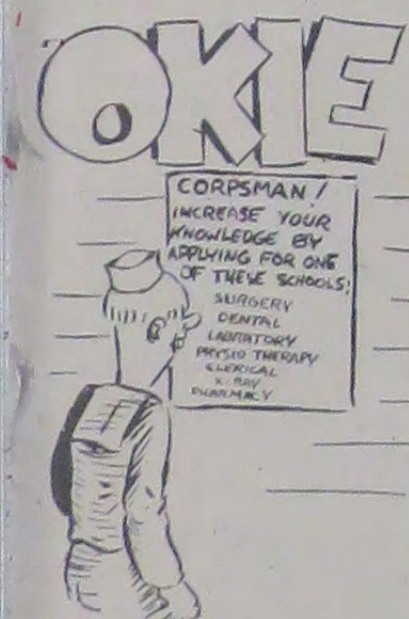 OKIE
CORPSMAN!
INCREASE YOUR
KNOWLEDGE BY
APPLYING FOR ONE
OF THESE SCHOOLS:
SURGERY
DENTAL
LABRITORY
PHYSIO THERAPY
CLERICAL
X-RAY
PHARMACY